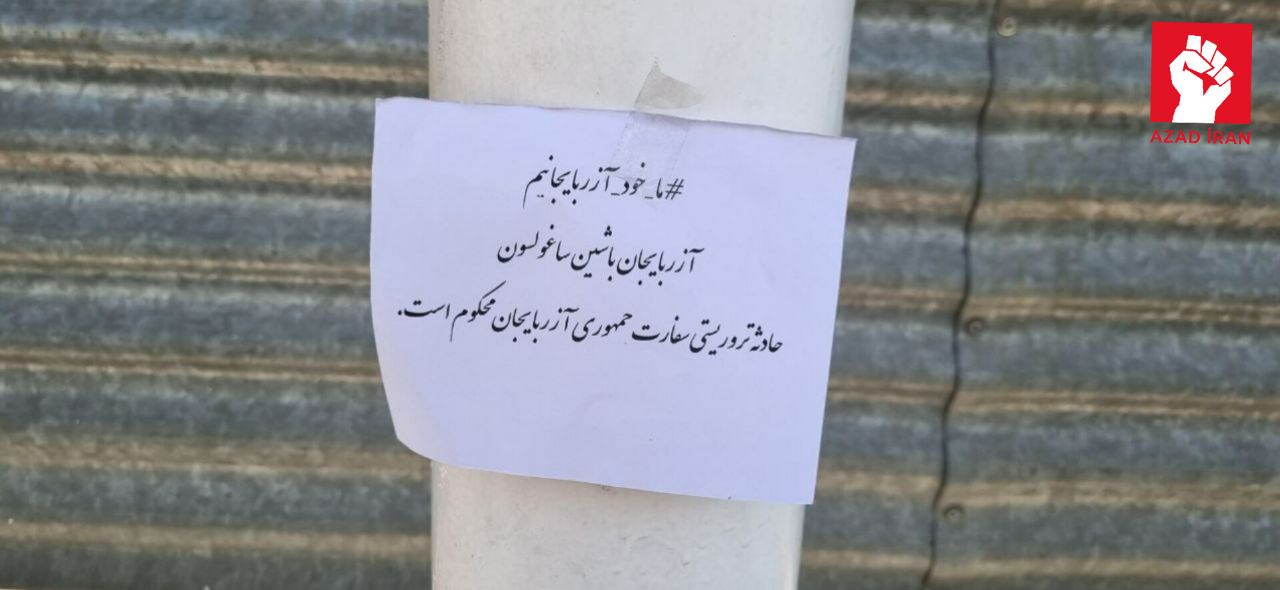 #ما_خود_آذربایجانیم
آذربایجان باشین ساغولسون
حادثه تروریستی سفارت جمهوری آذربایجان محکوم است.
AZAD İRAN